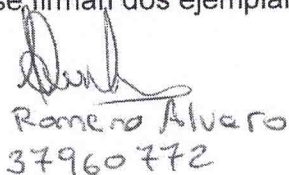 se firman dos ejemplar
Romero Alvaro
37960772